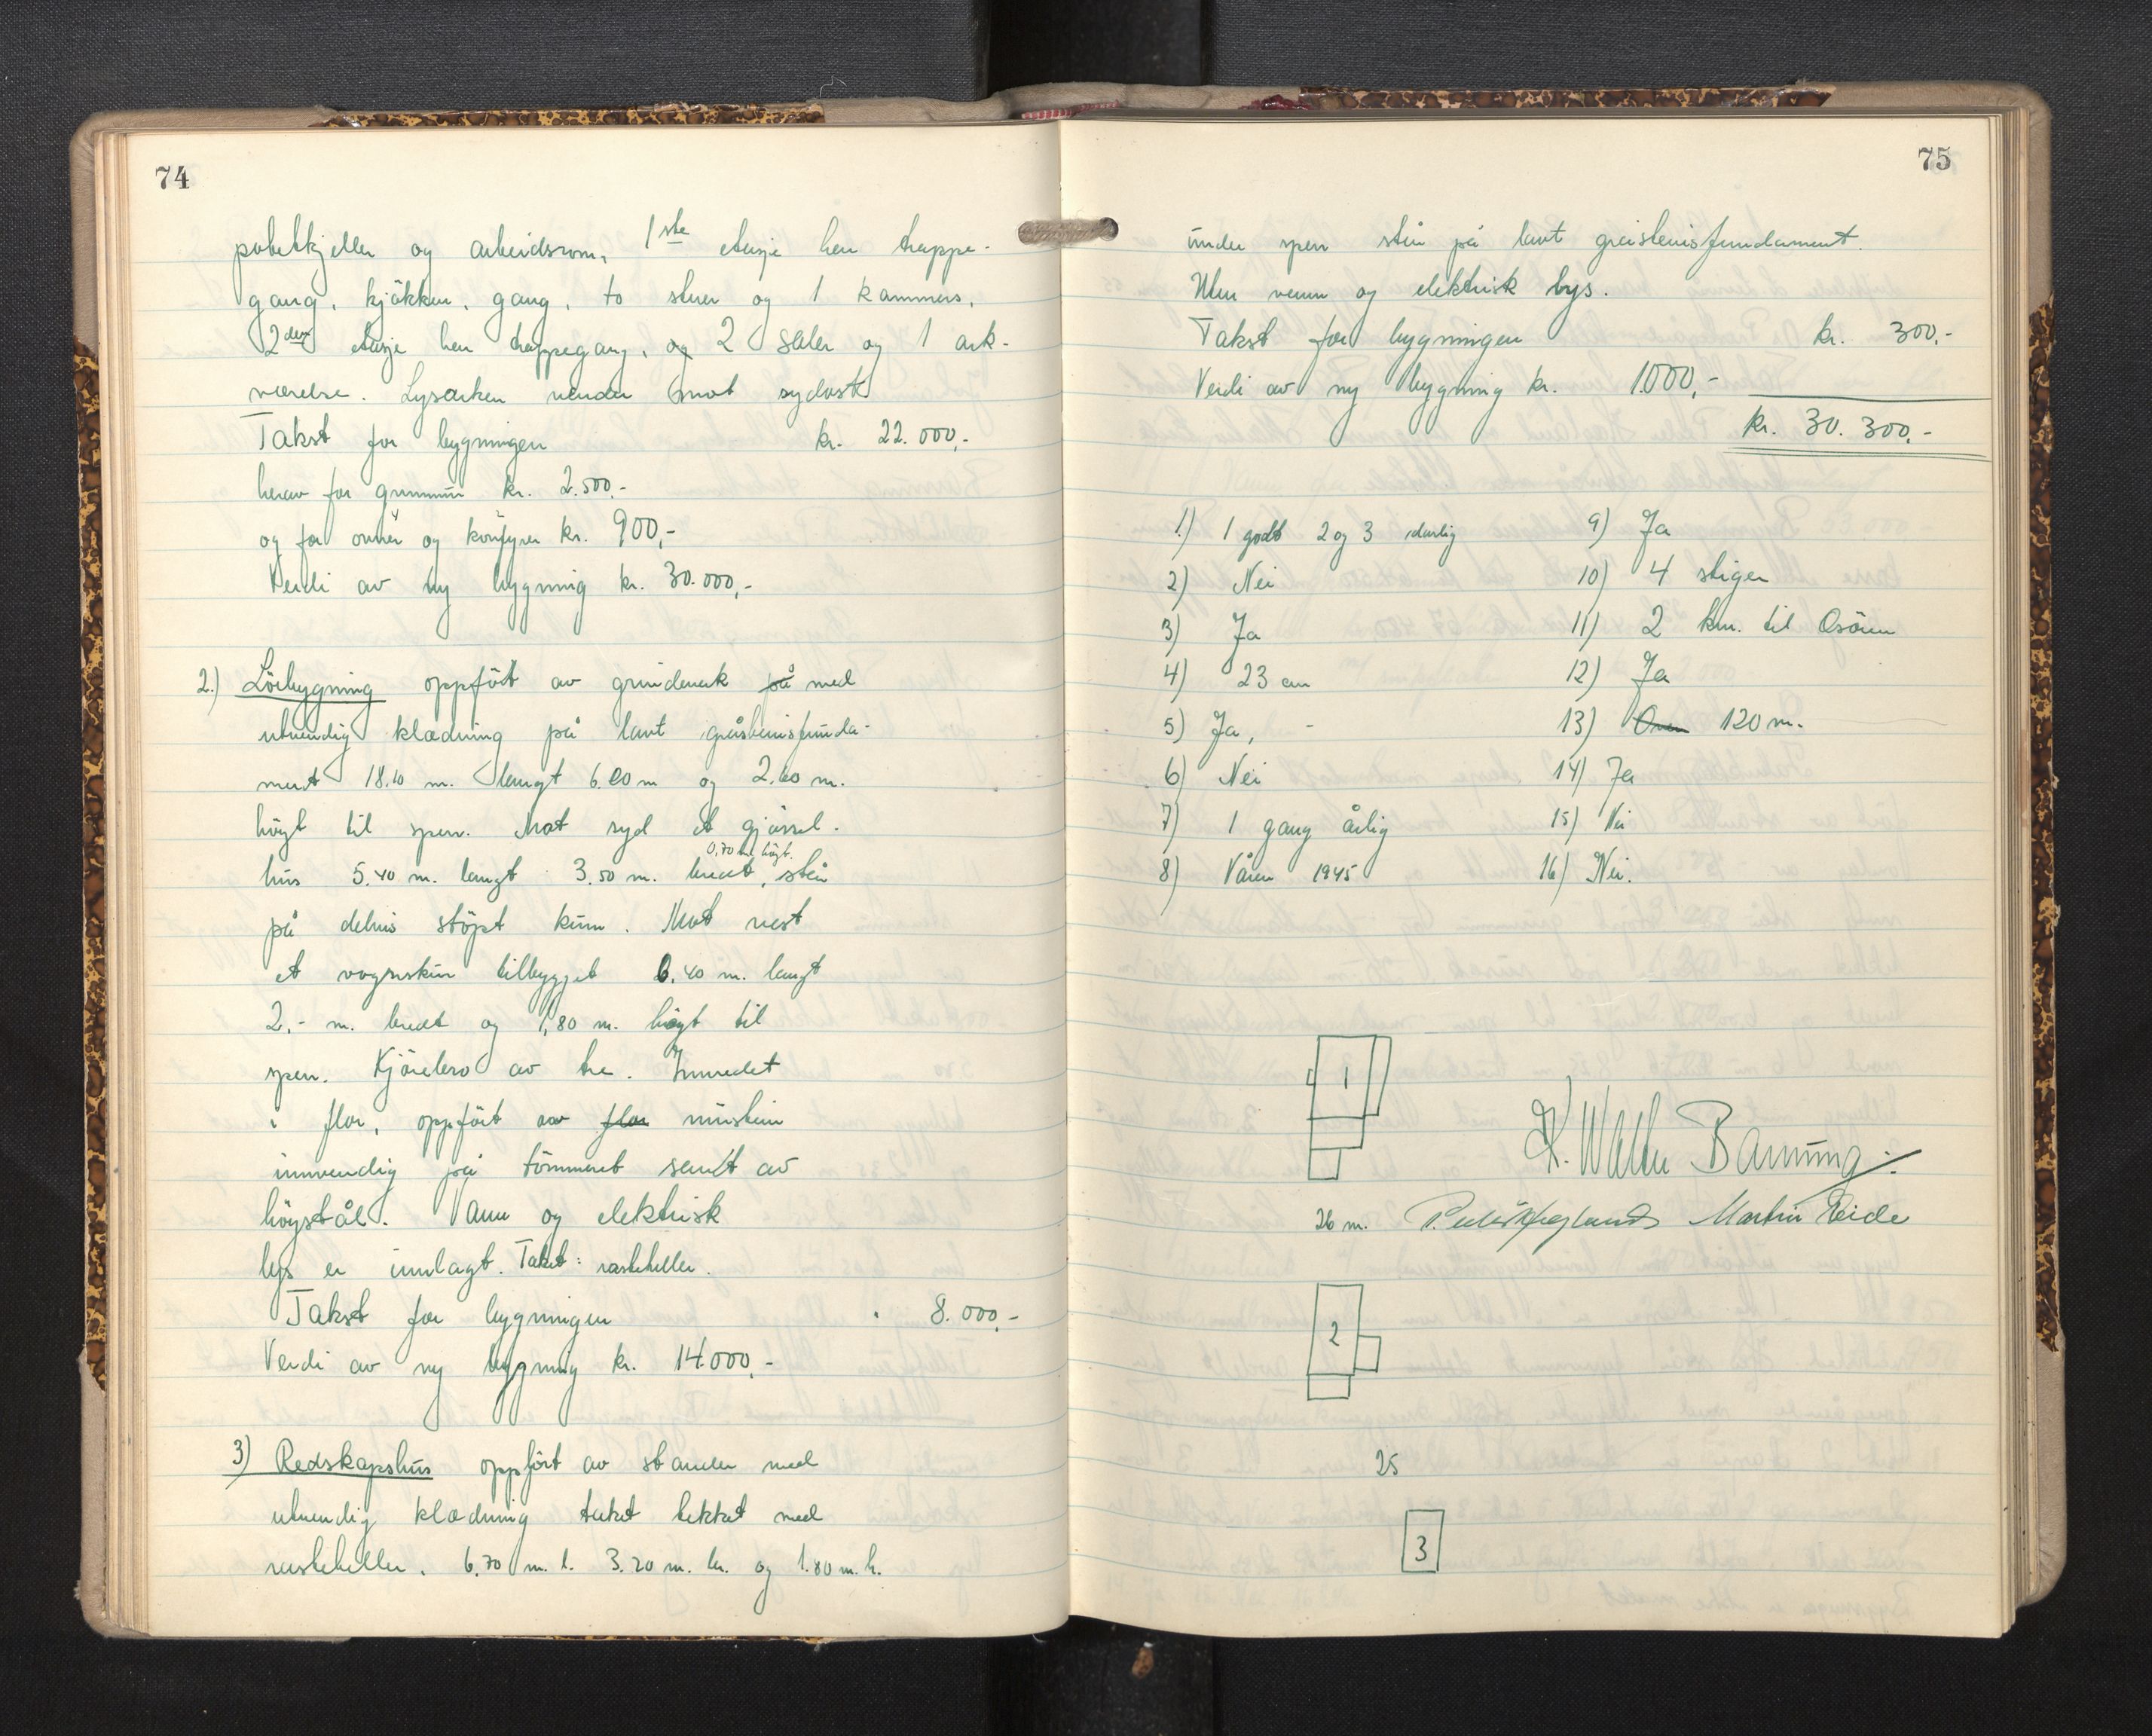 74
potetkjeller og arbeidsrom, 1ste etasje har trappe-
gang, kjökken, gang, to stuer og 1 kammers,
2den etasje har trappegang, og 2 saler og 1 ark-
værelse. Lysarken vender mot sydost
Takst for bygningen kr. 22.000,-
herav for grunnmur kr. 2.500,-
og for ovner og komfyrer kr. 900,-
Verdi av ny bygning kr. 30.000,-
2.) Löebygning oppfört av grindverk på med
utvendig klædning på lavt gråstensfunda-
ment 18.10 m. langt 6.00 m og 2.60 m.
höyt til sperr. Mot syd et gjössel-
0,70 m. höyt.
hus 5.40 m. langt 3.50 m. bredt, står
på delvis stöpt kum. Mot vest
et vognskur tilbygget 6.40 m. langt
2,- m. bredt og 1,80 m. höyt til
sperr. Kjörebro av tre. Innredet
i flor, oppfört av flor murstein
innvendig på tömmeret samt av
höystål. Vann og elektrisk
lys er innlagt. Taket: rasteheller.
Takst for bygningen " 8.000,-
Verdi av ny bygning kr. 14.000,-
3) Redskapshus oppfört av stander med
utvendig klædning taket tekket med
rasteheller. 6.70 m. l. 3.20 m. br. og 1.80 m. h.
75
under sperr står på lavt gråstensfundament.
Uten varme og elektrisk lys.
Takst for bygningen kr. 300,-
Verdi av ny bygning kr. 1.000,-
kr. 30.300,-
1) 1 godt 2 og 3 dårlig 9) Ja
2) Nei 10) 4 stiger
3) Ja 11) 2 km. til Osören
4) 23 cm 12) Ja
5) Ja, - 13) Over 120 m.
6) Nei 14) Ja
7) 1 gang årlig 15) Nei
8) Våren 1945 16) Nei.
1
K. Walter Banning
26 m. Peder Hegland Martin Eide
2
25
3